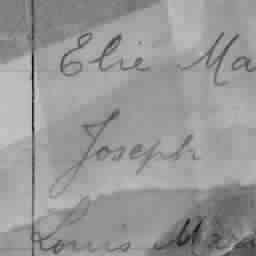 Elie Ma
Joseph
Louis Ma